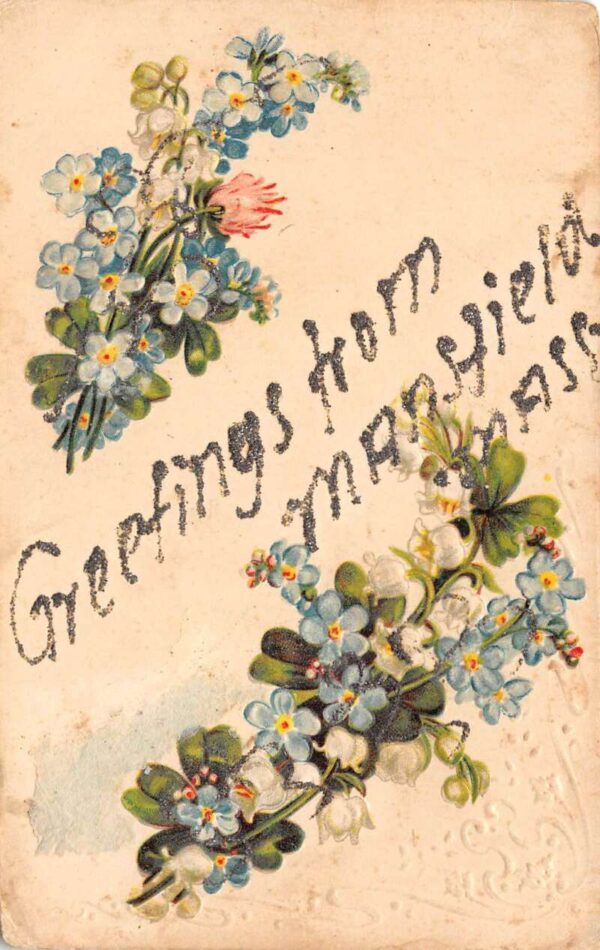 Greetings from
MAnsfield
MASS